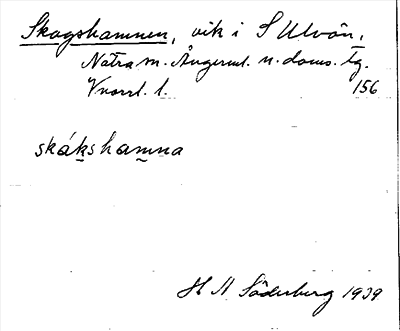 Skagshamnen, vik i S Ulvön,
Nätra sn. Ångerml. n. doms. tg.
Vnorrl. l. 156
skákshamna
H M Söderberg 1939